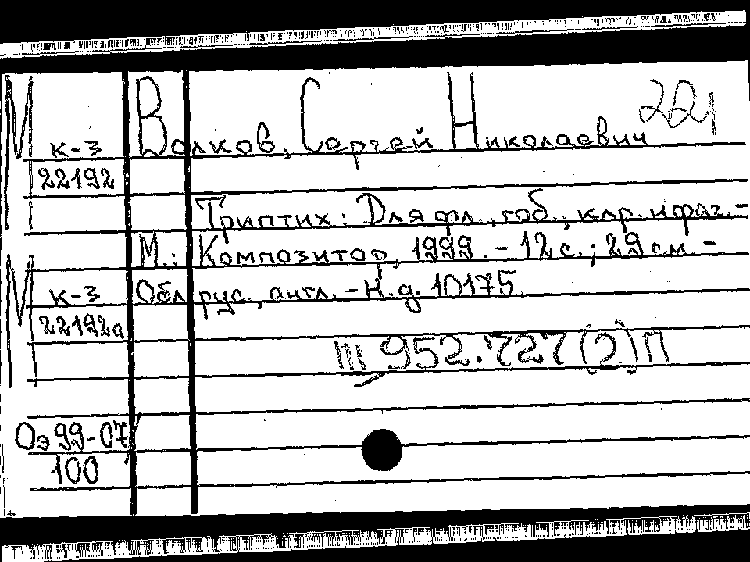 221
М к-3 Волков, Сергей Николаевич
22192
Триптих: Для фл., гоб., клр. и фаг. -
М.: Композитор, 1999. - 12 с.; 29 см. -
М к-3 Обл. рус., англ. - Н.д. 10175.
22192а
III 952.727(2)П
Оэ 99-07/
100